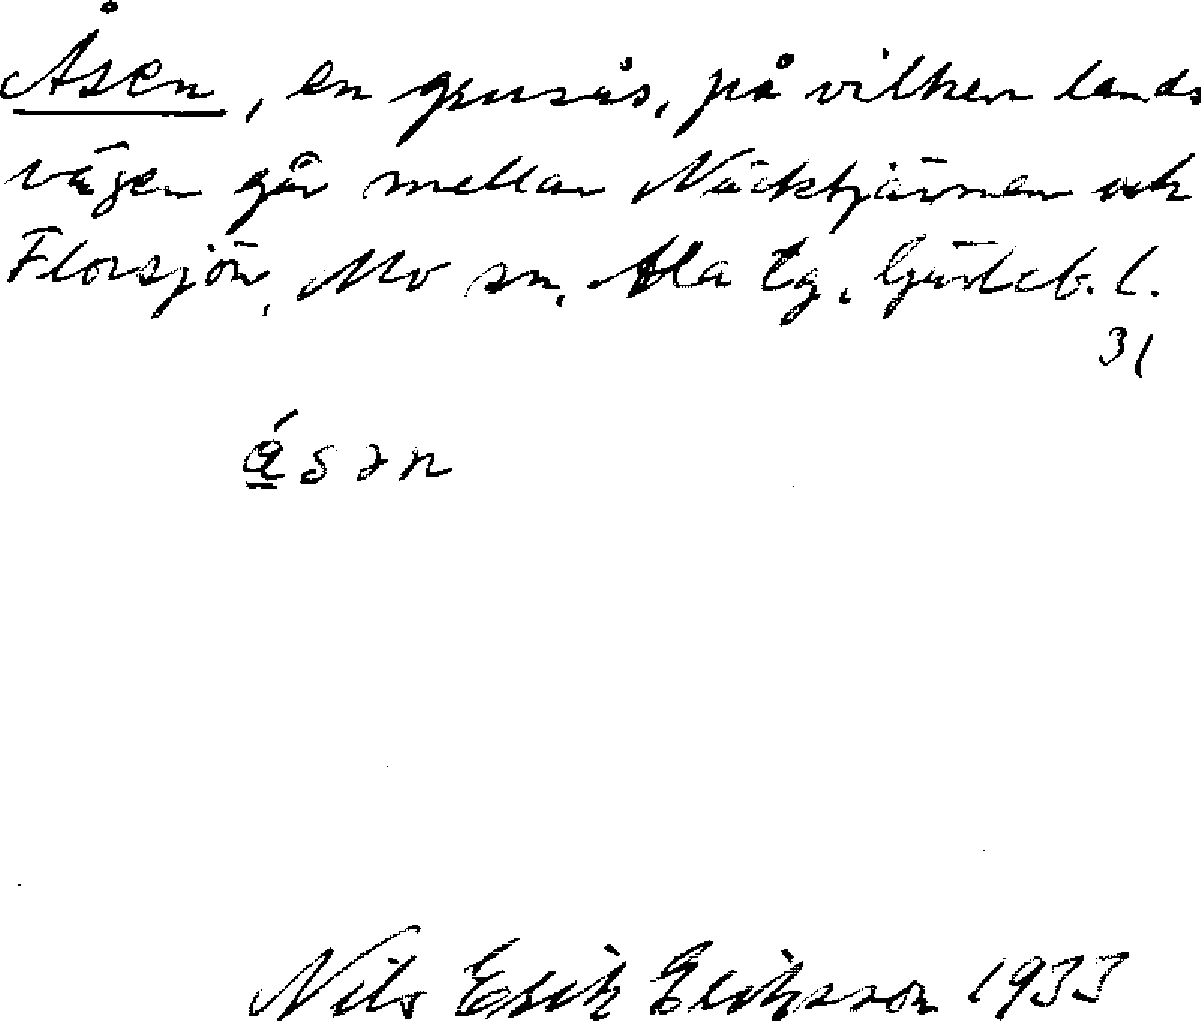 Åsen, en grusås, på vilken lands
vägen går mellan Näcktjärnen och
Florsjön, Mo sn, Ala tg, Gävleb. l.
31
ásən
Nils Erik Eriksson 1933